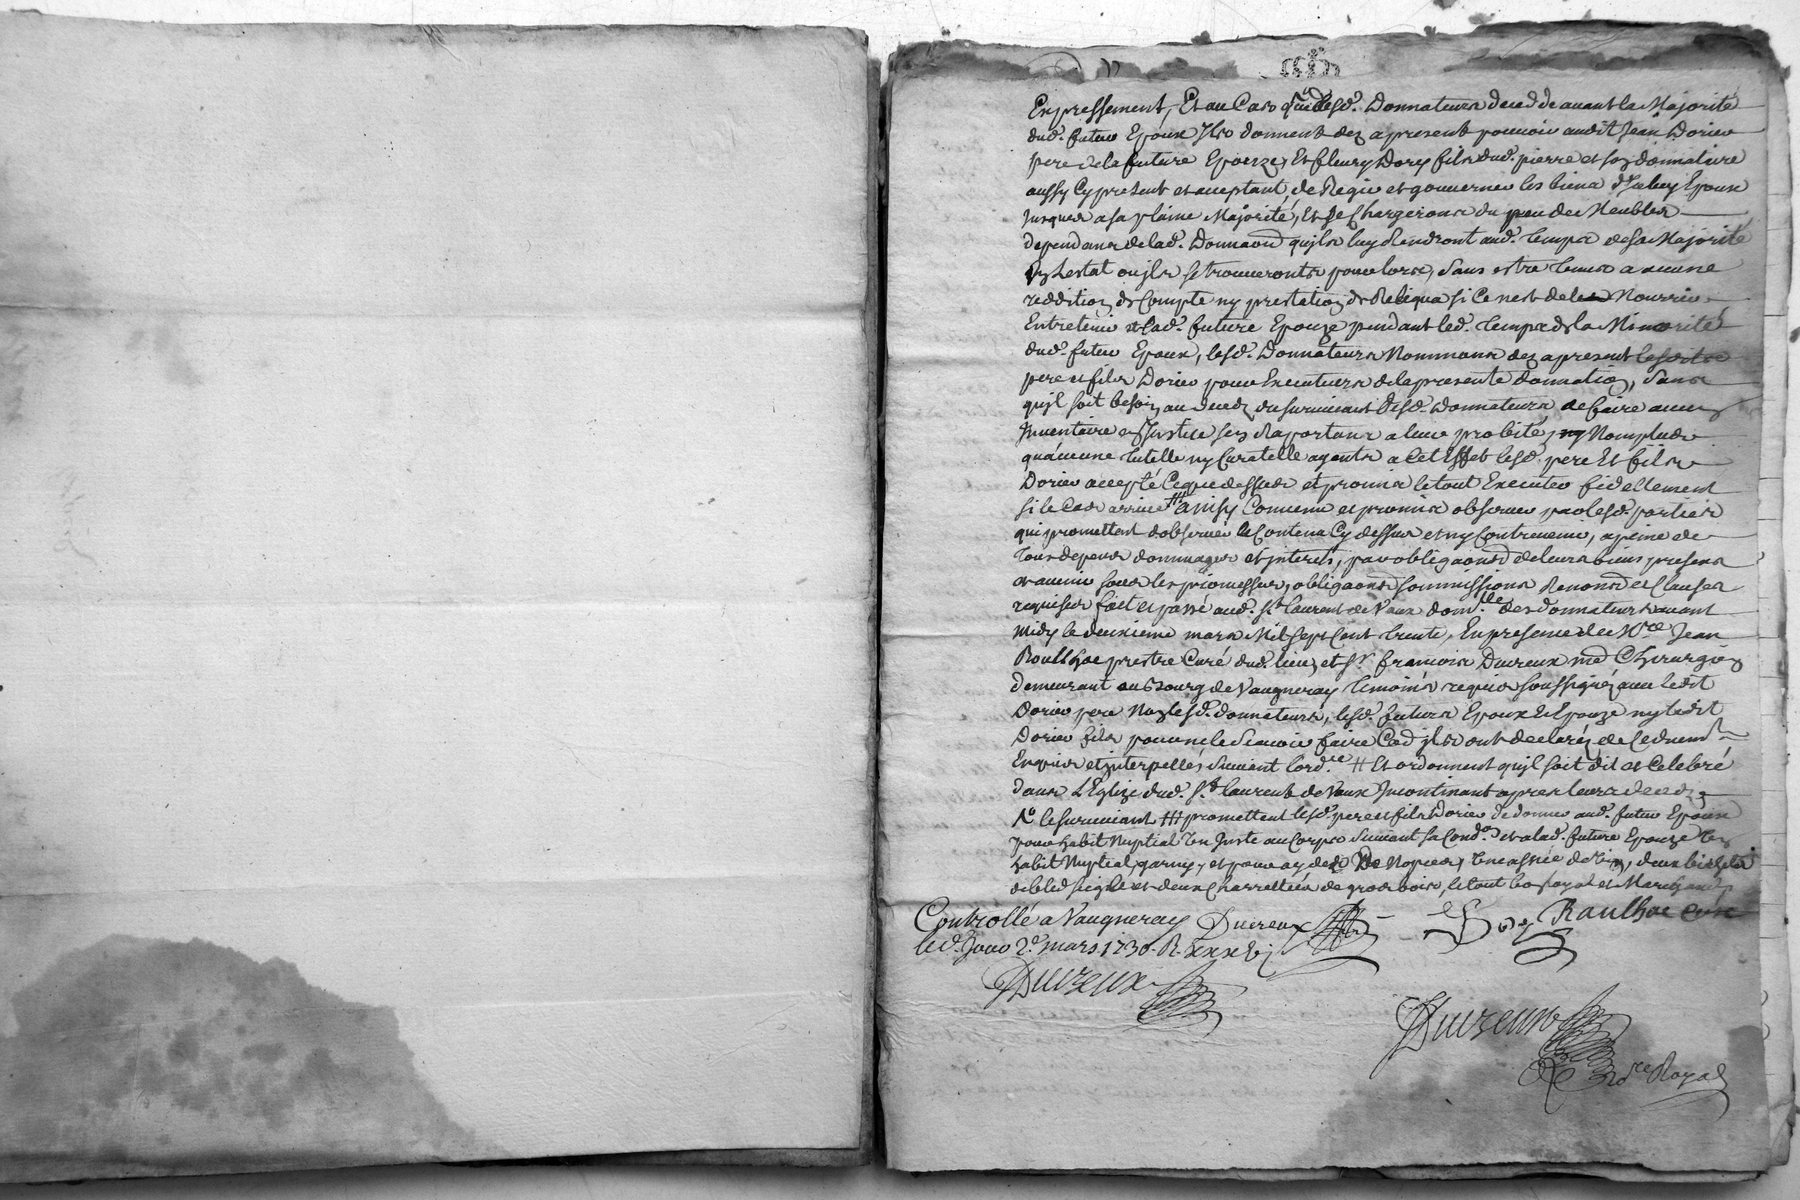 Expressement, Et au Cas que lesd. Donnateurs deced de auant la Majorité
dud. futeur Epoux Ilz donnent dez apresent pouuoir audit Jean Dorier
pere de la future Epouze, Et fleury Dory fils dud. pierre et son donnataire
aussy Cy present et acceptant, de Regir et gouuerner les biens Epoux
Jusques a sa plaine Majorité, Et se Chargeronts du peu de Meubles
dependans de lad. Donnaon quils luy Rendront aud. temps de sa Majorité
En Lestat ou ils se trouueronts pour lors, sans estre tenus a aucune
reddition de Compte ny prestation de Reliqua si Ce nest de les Nourrir
Entretenir et lad. future Epouze pendant led. temps de la Minorité
dud. futeur Epoux, lesd. Donnateurs Nommans dez apresent lesdits
pere et fils Dorier pour Executeurs de la presente donnation, sans
quil soit besoin au decedz du suruiuant desd. Donnateurs de faire aucun
Inuentaire en Justice sen Raportans a leur probité, ny Nomplus
quaucune tutelle ny Curatelle agents a Cet Effet lesd. pere Et fils
Dorier accepté Ce que dessus et promis le tout Executer fidellement
si le Cas arriue # ainsy Conuenu et promis obseruer par lesd. parties
qui promettent dobseruer le Contenu Cy dessus et ny Contreuenir, a peine de
tous depens dommages et Interets, par obligaons de leurs biens presens
et auenir sous les promesses, obligaons soumissions Renons et Clauses
requises fait et passé aud. St laurent de Vaux dom.lle des donnateurs auant
midy le deuxieme mars Mil sept Cent trente, En presence de Mre Jean
Roulhac prestre Curé dud. lieu, et Sr francois Duvreux me Chirurgien
demeurant au Bourg de Vaugneray temoins requis soussignez auec ledit
Dorier pere Non lesd. donnateurs, lesd. futurs Epoux Et Epouze ny ledit
Dorier fils pour ne le scauoir faire Ilz ont declarez de Ce duement
Enquis et Interpellés suiuant lord.ce # Et ordonnent quil soit dit et Celebré
dans LEglize dud. St laurent de Vaux Incontinant apres leurs decedz
le suruiuant ### promettent lesd. pere et fils Dorier de donner aud. futeur Epoux
pour habit Nuptial Un Juste au Corps suiuant sa Condon et a lad. future Epouze Un
habit Nuptial garny, et pour ayder Nopces, Une asnée de Vin, deux bichets
de bled seigle et deux Charrettées de gros bois, le tout bon loyal et Marchand
Controllé a Vaugneray Duvreux Dory Raulhac Curé
led. Jour 2e mars 1730. R.
Duvreux
Duvreux
Nore Royal